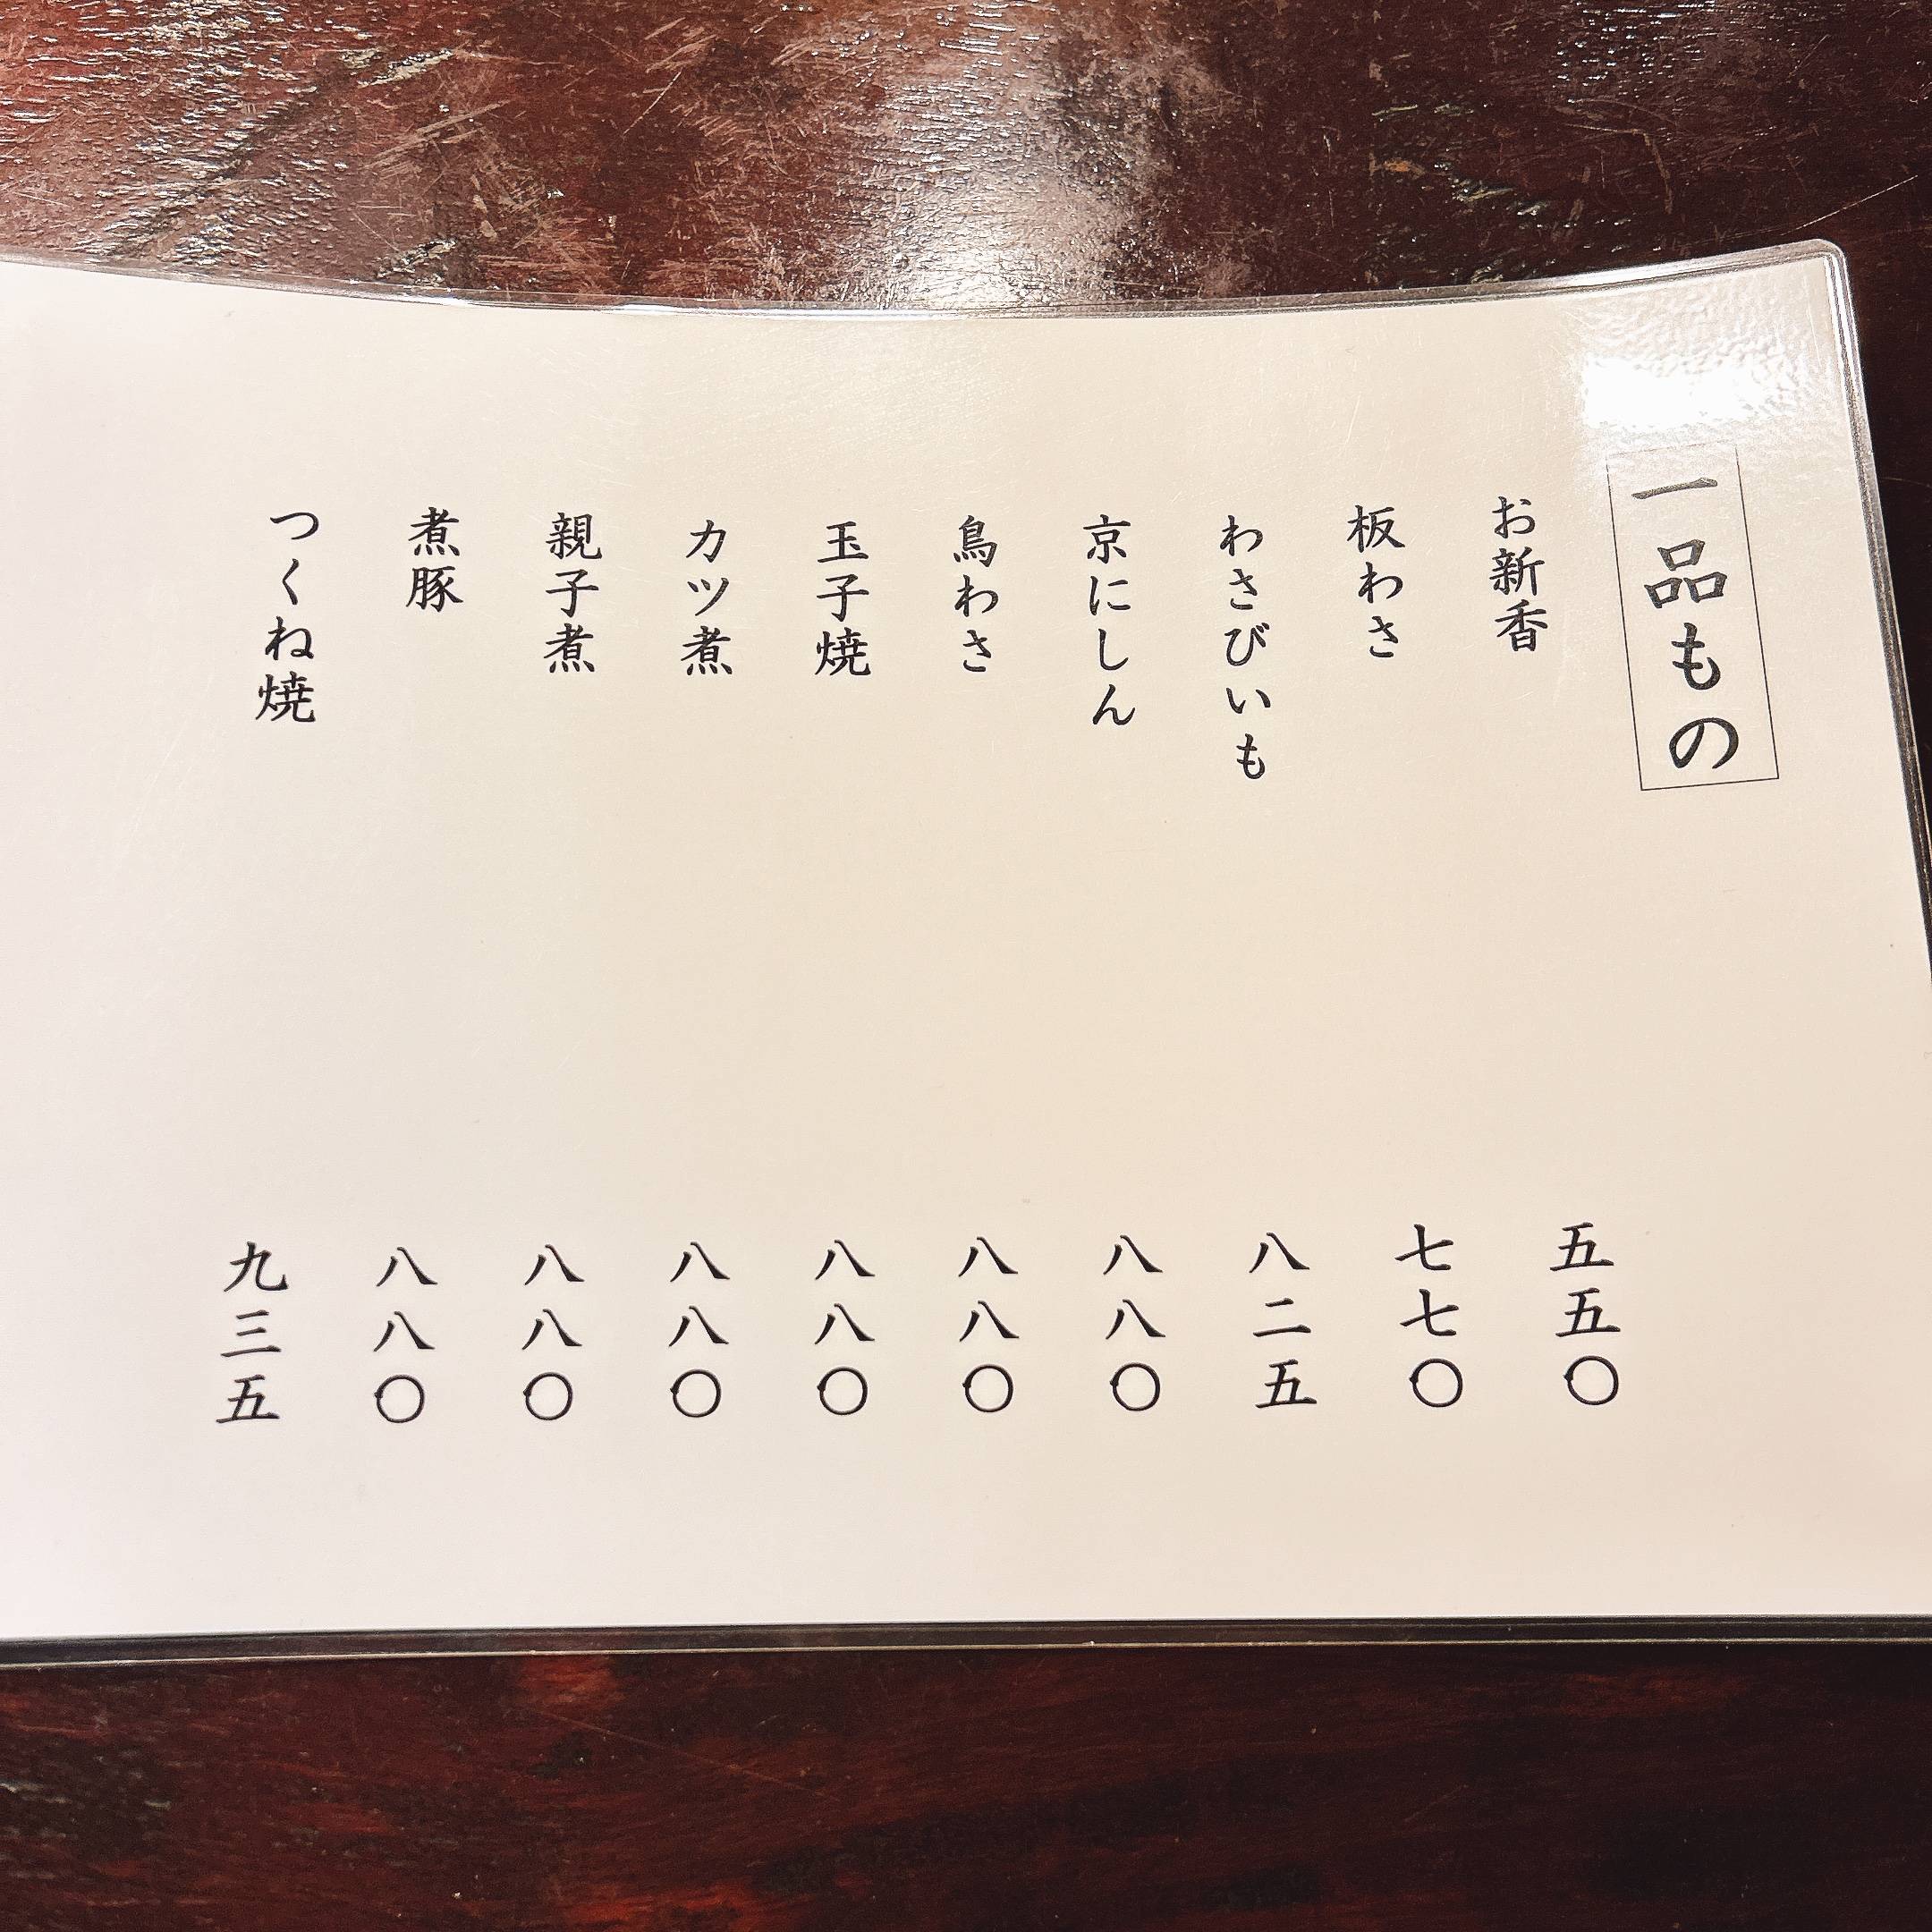 一品もの
お新香 五五〇
板わさ 七七〇
わさびいも 八二五
京にしん 八八〇
鳥わさ 八八〇
玉子焼 八八〇
カツ煮 八八〇
親子煮 八八〇
煮豚 八八〇
つくね焼 九三五